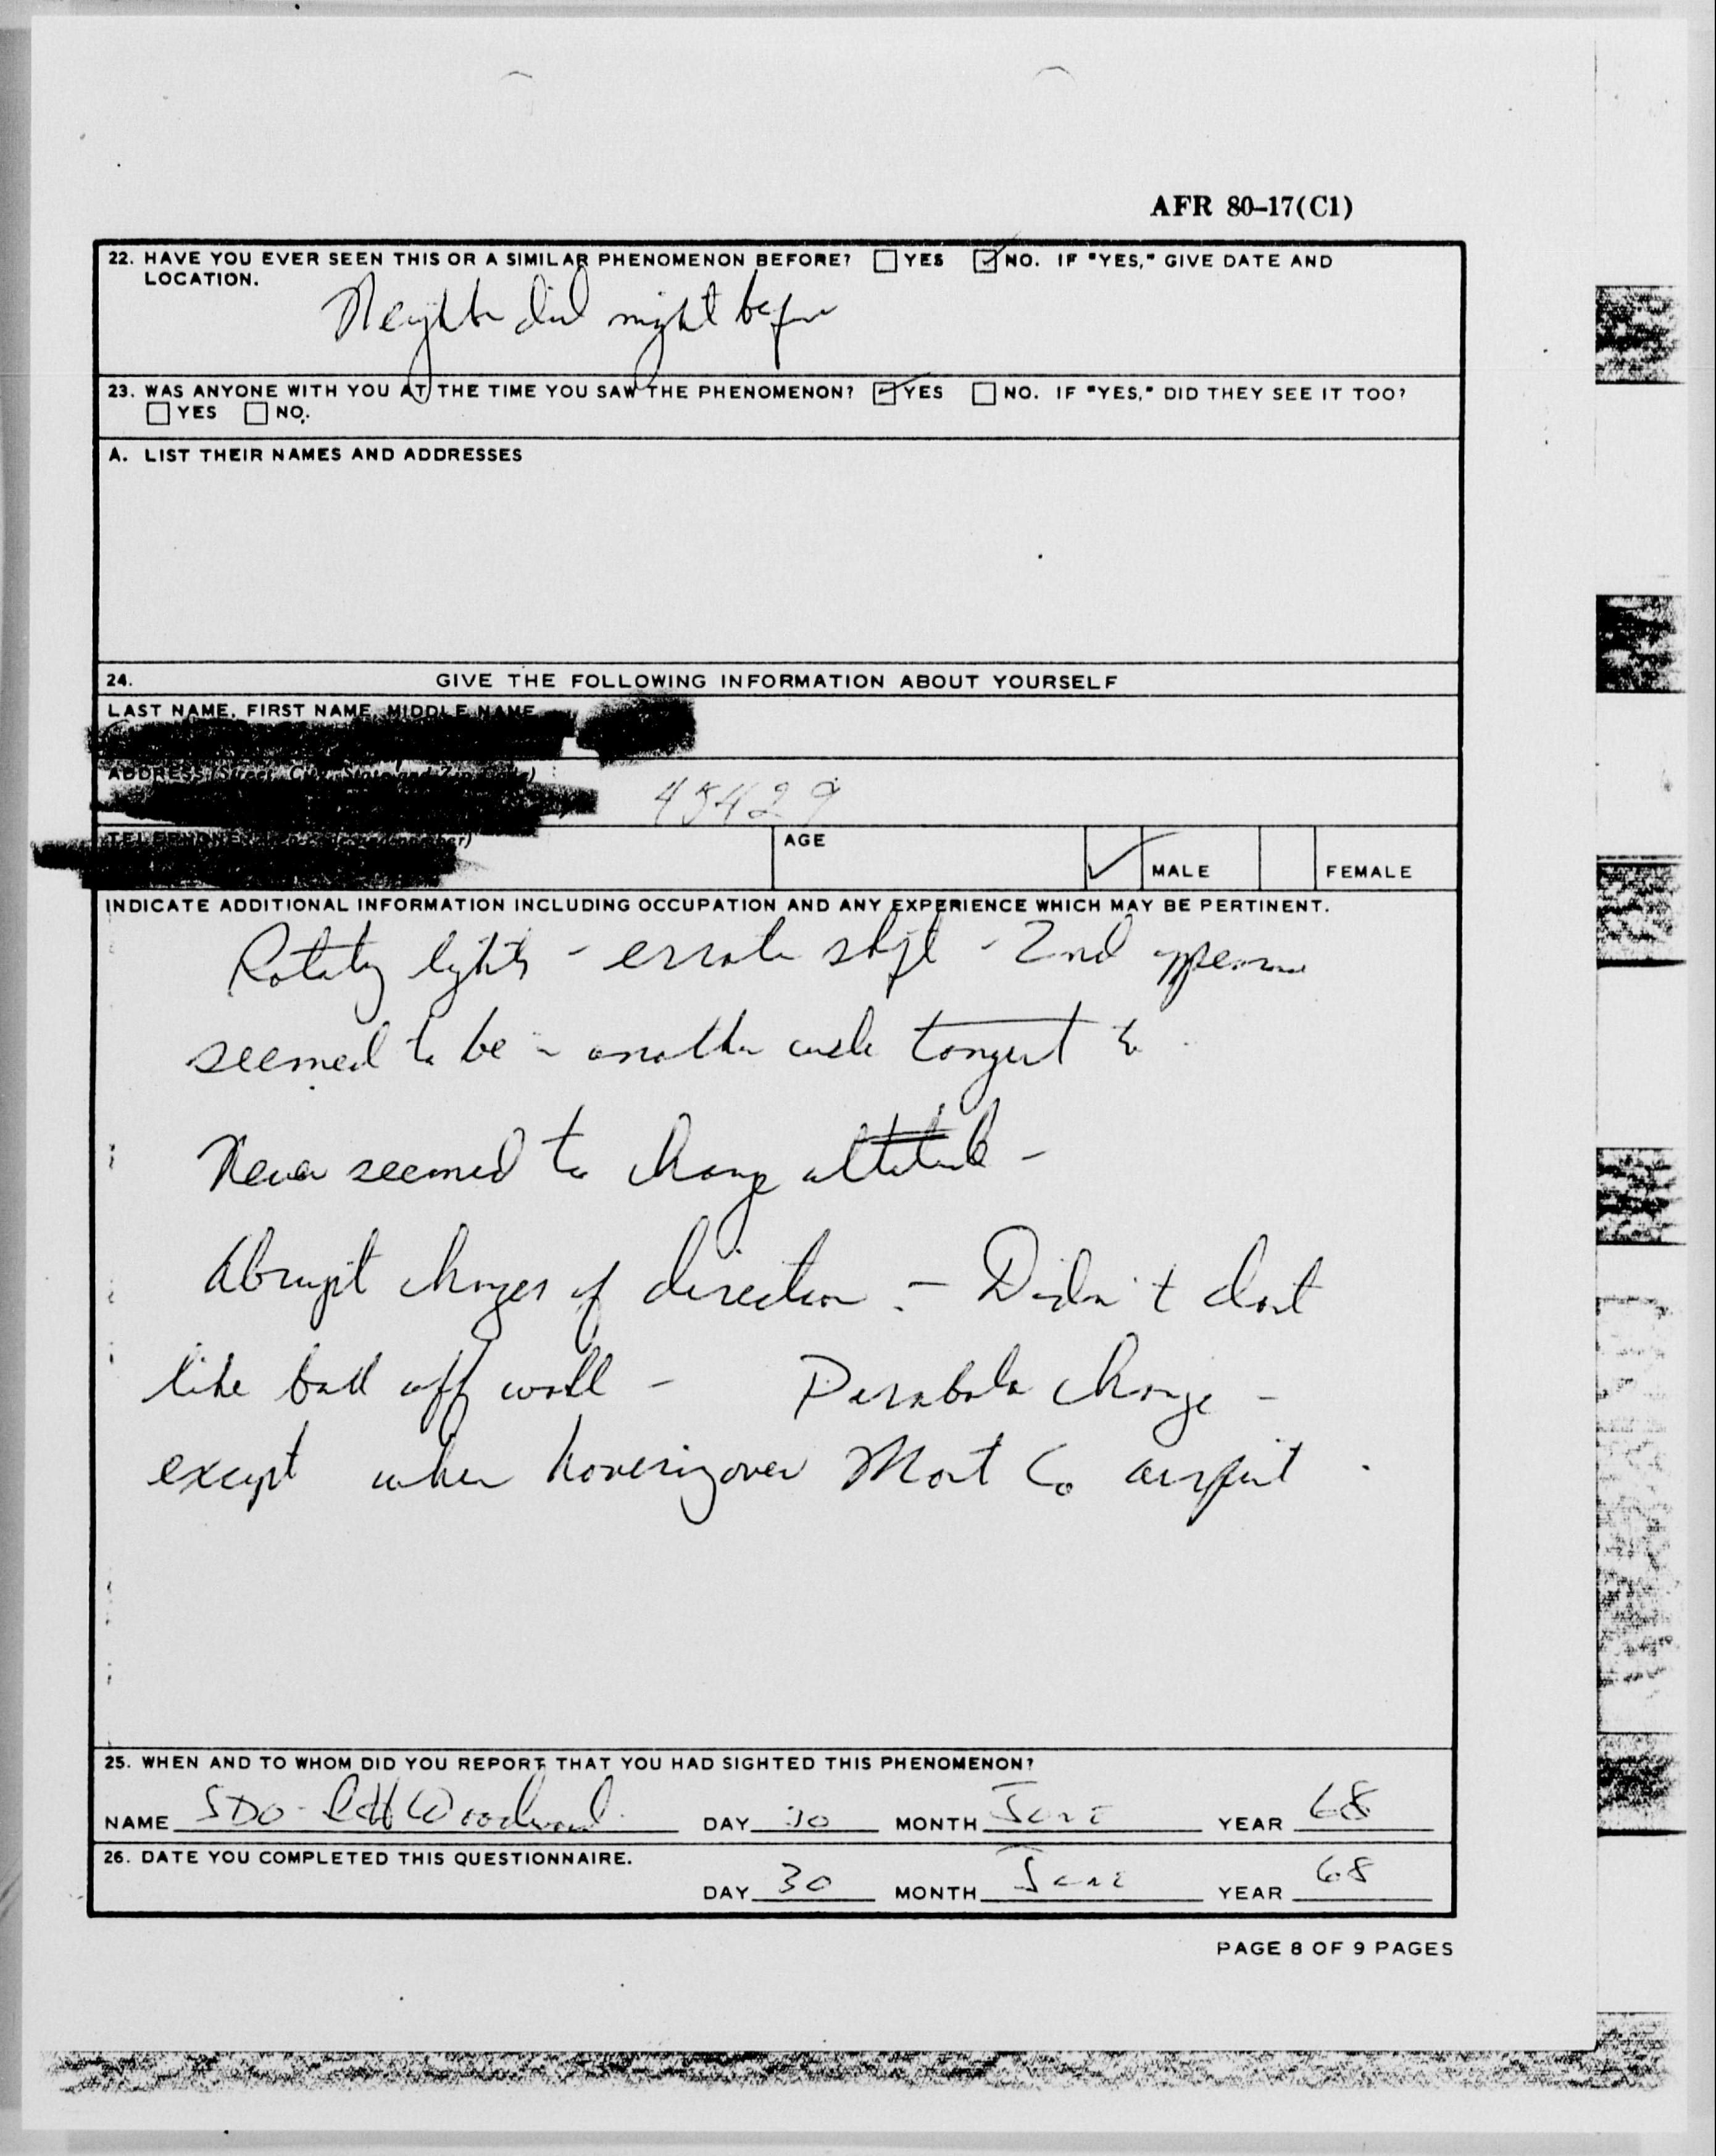 AFR 80-17(C1)
22. HAVE YOU EVER SEEN THIS OR A SIMILAR PHENOMENON BEFORE? YES NO. IF "YES," GIVE DATE AND
LOCATION.
Neighbor did night before
23. WAS ANYONE WITH YOU AT THE TIME YOU SAW THE PHENOMENON? YES NO. IF "YES," DID THEY SEE IT TOO?
YES NO.
A. LIST THEIR NAMES AND ADDRESSES
24. GIVE THE FOLLOWING INFORMATION ABOUT YOURSELF
LAST NAME, FIRST NAME, MIDDLE NAME
ADDRESS (Street, City, State and Zip Code)
45429
TELEPHONE
AGE MALE FEMALE
INDICATE ADDITIONAL INFORMATION INCLUDING OCCUPATION AND ANY EXPERIENCE WHICH MAY BE PERTINENT.
Rotating lights - erratic - 2nd appearance
seemed to be - another circle tangent to
Never seemed to change altitude -
Abrupt changes of direction. - Didn't dart
like ball off wall - Parabola change -
except when hovering over Mont Co airport.
25. WHEN AND TO WHOM DID YOU REPORT THAT YOU HAD SIGHTED THIS PHENOMENON?
NAME SDO - Woodward DAY 30 MONTH June YEAR 68
26. DATE YOU COMPLETED THIS QUESTIONNAIRE.
DAY 30 MONTH June YEAR 68
PAGE 8 OF 9 PAGES